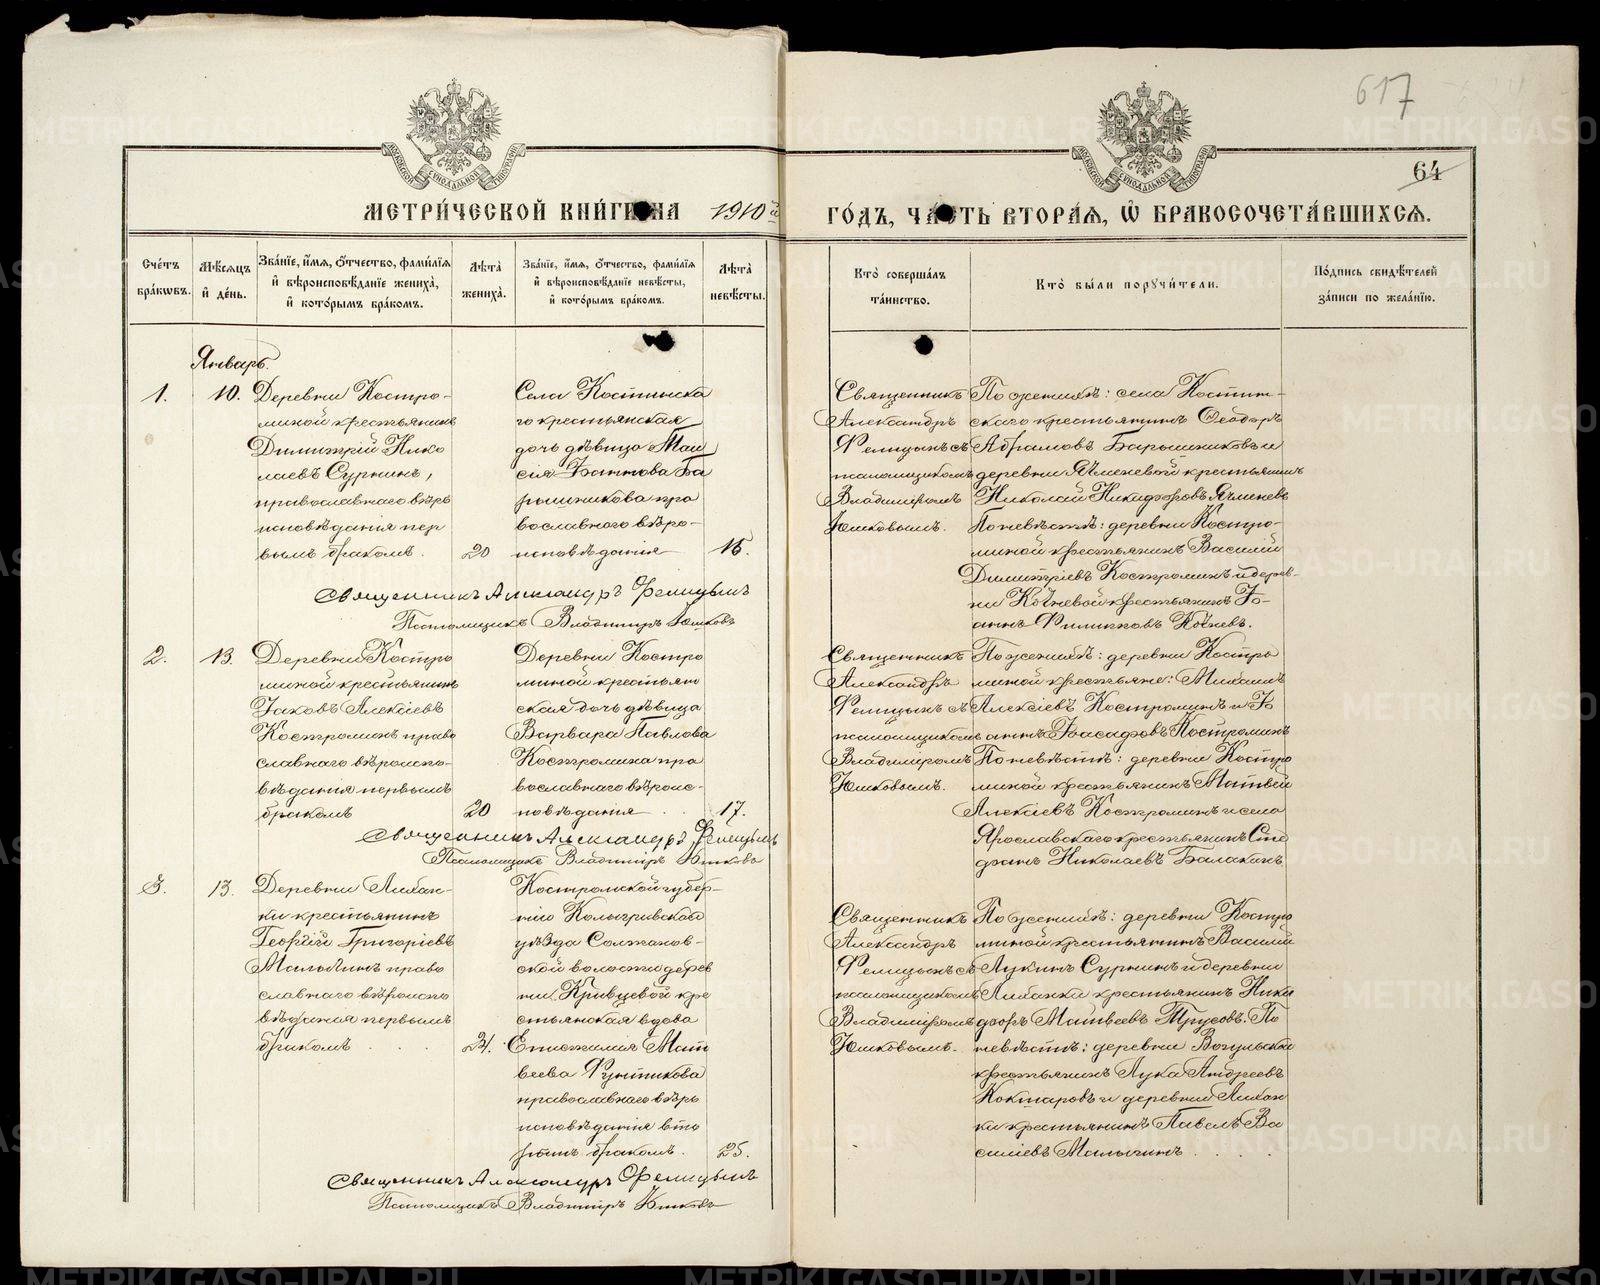 617
64
МЕТРИ́ЧЕСКОЙ КНИ́ГИ НА 1910й
ГО́ДЪ, ЧА́СТЬ ВТОРА́Я, Ѡ БРАКОСОЧЕТА́ВШИХСЯ.
Сче́тъ бра́кωвъ.
Мѣ́сяцъ и́ де́нь.
Зва́нїе, и́мя, о́тчество, фами́лїя и́ вѣроисповѣ́данїе жениха̀, и́ кото́рымъ бра́комъ.
Лѣ́та жениха̀.
Зва́нїе, и́мя, о́тчество, фами́лїя и́ вѣроисповѣ́данїе невѣ́сты, и́ кото́рымъ бра́комъ.
Лѣ́та невѣ́сты.
Кто̀ соверша́лъ та́инство.
Кто̀ бы́ли порꙋчи́тели.
По́дпись свидѣ́телей за́писи по жела́нїю.
Январь.
1.
10.
Деревни Костро-
миной крестьянинъ
Димитрій Нико
лаевъ Сурнинъ,
православнаго вѣро
исповѣданія пер
вымъ бракомъ.
20
Села Костинска
го крестьянская
дочь дѣвица
рышникова пра
вославнаго вѣро-
исповѣданія
16.
Священникъ
Александръ
Фелицынъ съ
псаломщикомъ
Владиміромъ
Юшковымъ.
По женихѣ: села Костин-
скаго крестьянинъ Ѳеодоръ
Абрамовъ Барышниковъ и
деревни Ячменевой крестьянинъ
Николай Никифоровъ Ячменевъ
По невѣстѣ: деревни Костро-
миной крестьянинъ Василій
Димитріевъ Костроминъ и дерев-
ни Кочневой крестьянинъ Іо-
аннъ Филипповъ Кочневъ.
Священникъ Александръ Фелицынъ
Псаломщикъ Владиміръ Юшковъ
2.
13.
Деревни Костро
миной крестьянинъ
Іаковъ Алексіевъ
Костроминъ право
славнаго вѣроиспо-
вѣданія первымъ
бракомъ
20
Деревни Костро
миной крестьян
ская дочь дѣвица
Варвара Павлова
Костромина пра
вославнаго вѣроис-
повѣданія
17.
Священникъ
Александръ
Фелицынъ съ
псаломщикомъ
Владиміромъ
Юшковымъ.
По женихѣ: деревни Костро
миной крестьяне: Михаилъ
Алексіевъ Костроминъ и Іо
аннъ Іоасафовъ Костроминъ
По невѣстѣ: деревни Костро
миной крестьянинъ Матвей
Алексіевъ Костроминъ и села
Ярославскаго крестьянинъ Сте
фанъ Николаевъ Балакинъ.
Священникъ Александръ Фелицынъ
Псаломщикъ Владиміръ Юшковъ
3.
13.
Деревни Лихан-
ки крестьянинъ
Георгій Григоріевъ
Малыгинъ право
славнаго вѣроиспо
вѣданія первымъ
бракомъ
24.
Костромской губер-
ніи Кологривскаго
уѣзда
ской волости дерев
ни Кривцевой кре
стьянская вдова
Епистимія Мат
веева
православнаго вѣро
исповѣданія вто
рымъ бракомъ.
25.
Священникъ
Александръ
Фелицынъ съ
псаломщикомъ
Владиміромъ
Юшковымъ.
По женихѣ: деревни Костро
миной крестьянинъ Василій
Лукинъ Сурнинъ и деревни
Лиханки крестьянинъ Ники
форъ Матвеевъ Трусовъ. По
невѣстѣ: деревни Вогульской
крестьянинъ Лука Андреевъ
Кокшаровъ и деревни Лихан
ки крестьянинъ Павелъ Ва
силіевъ Малыгинъ
Священникъ Александръ Фелицынъ
Псаломщикъ Владиміръ Юшковъ